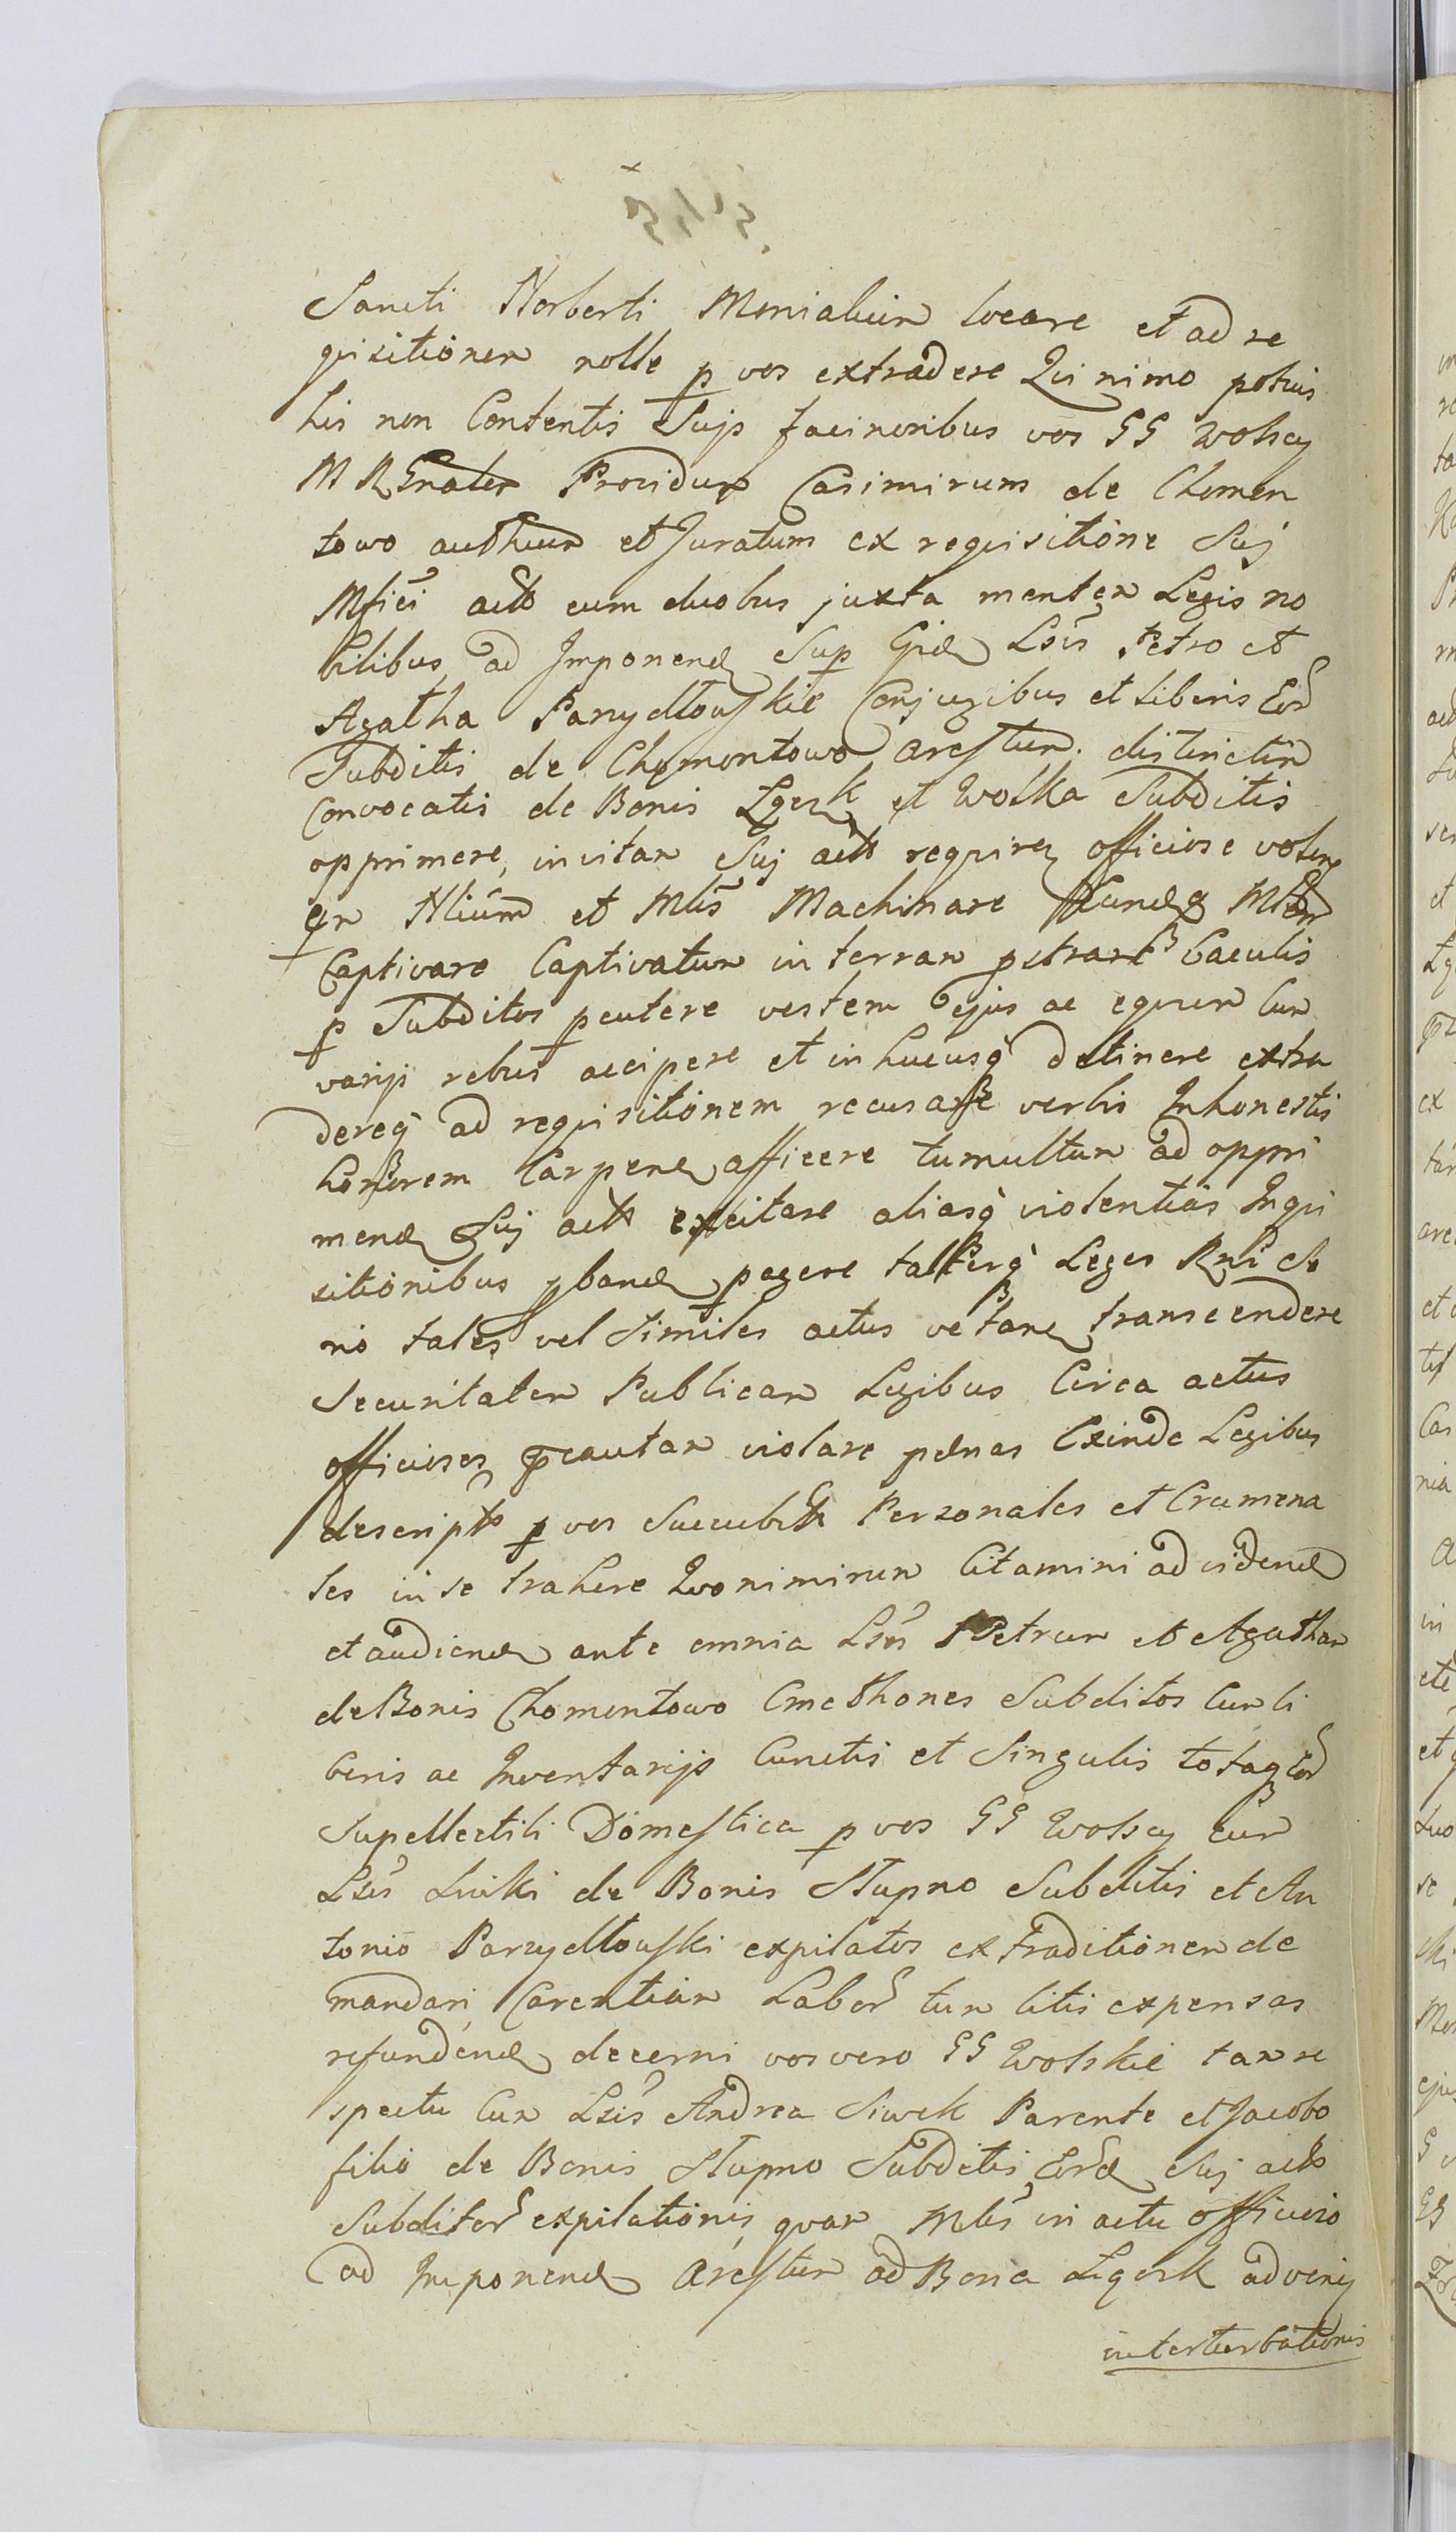 Sancti Norberti Monialium locare et ad re
quisitionem nolle p vos extradere Quinimo potius
his non Contentis Sujs facinoribus vos GG Wolscy
M R Gnaler Providum Casimirum de Chomen
towo authum et Juratum ex requisitione Suj
Mfici actt cum duobus juxta mentem Legis no
bilibus ad Imponend Sup Lsis Petro et
Agatha Parzydłouskie Conjugibus et liberis Eor
Subditis de Chomontowo arestum districtim
Convocatis de Bonis Lgosk et Wolka Subditis
opprimere, invitam Suj actt requiren officiose
Nlium et Mlis Machinare
Captivare Captivatum in terram pstrare baculis
p Subditos pcutere vestem ejus ac equum Cum
varijs rebus accipere et in hucusq detinere extra
dereq ad requisitionem recusasse verbis Inhonestis
honorem Carpend afficere tumultum ad oppri
mend Suj actt excitare aliasq violentias Inqui
sitionibus pband pagere Leges Rni Se
no tales vel Similes actus vetan transcendere
Securitatem Publicam Legibus Circa actus
officiosos pcautam violare pænas Exinde Legibus
descriptt p vos Succubitt Personales et Crumena
les in se trahere Quonimirum Citamini ad vidend
et audiend ante omnia Lsos Petrum et Agatham
de Bonis Chomentowo Cmethones Subditos Cum li
beris ac Inventarijs Cunctis et Singulis totaq Eor
Supellectili Domestica p vos GG Wolscy cum
Lsis Luiki de Bonis Słupno Subditis et An
tonio Parzydłouski expilatos extraditionem de
mandari, Carentiam Labor tum litis expensas
refundend decerni vos vero GG Wolskie tam re
spectu Cum Lsis Andrea Siwek Parente et Jacobo
filio de Bonis Słupno Subditis Eord Suj actt
Subditor expilationis quam Mlis in actu officioso
ad Imponend Arestum ad Bona Lgosk adveni
interturbationis